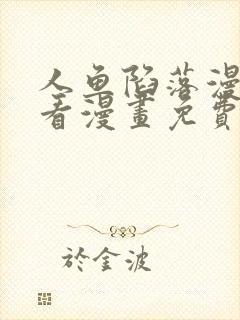 人鱼陷落漫
看漫畫免費
於金波